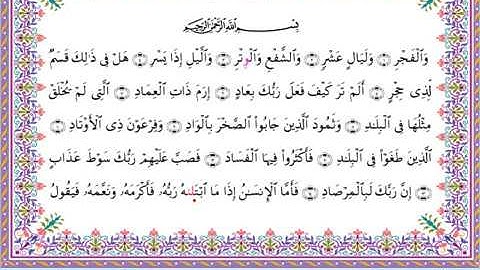 بِسْمِ ٱللَّهِ ٱلرَّحْمَٰنِ ٱلرَّحِيمِ
وَٱلْفَجْرِ ۝ وَلَيَالٍ عَشْرٍ ۝ وَٱلشَّفْعِ وَٱلْوَتْرِ ۝ وَٱلَّيْلِ إِذَا يَسْرِ ۝ هَلْ فِى ذَٰلِكَ قَسَمٌ
لِّذِى حِجْرٍ ۝ أَلَمْ تَرَ كَيْفَ فَعَلَ رَبُّكَ بِعَادٍ ۝ إِرَمَ ذَاتِ ٱلْعِمَادِ ۝ ٱلَّتِى لَمْ يُخْلَقْ
مِثْلُهَا فِى ٱلْبِلَٰدِ ۝ وَثَمُودَ ٱلَّذِينَ جَابُوا۟ ٱلصَّخْرَ بِٱلْوَادِ ۝ وَفِرْعَوْنَ ذِى ٱلْأَوْتَادِ ۝
ٱلَّذِينَ طَغَوْا۟ فِى ٱلْبِلَٰدِ ۝ فَأَكْثَرُوا۟ فِيهَا ٱلْفَسَادَ ۝ فَصَبَّ عَلَيْهِمْ رَبُّكَ سَوْطَ عَذَابٍ
۝ إِنَّ رَبَّكَ لَبِٱلْمِرْصَادِ ۝ فَأَمَّا ٱلْإِنسَٰنُ إِذَا مَا ٱبْتَلَىٰهُ رَبُّهُۥ فَأَكْرَمَهُۥ وَنَعَّمَهُۥ فَيَقُولُ